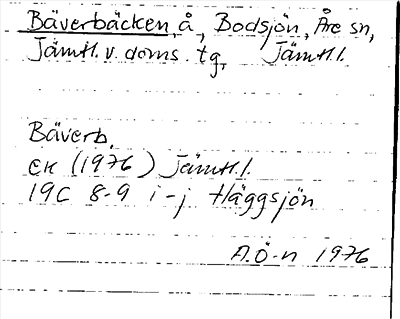 Bäverbäcken, å, Bodsjön, Åre sn,
Jämtl. v. doms. tg, Jämtl.l.
Bäverb.
EK (1976) Jämtl.l.
19C 8-9 i-j Häggsjön
A.Ö-n 1976